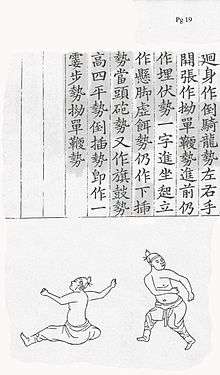 Pg 19
迴身作倒騎龍勢左右手
開張作拗單鞭勢進前仍
作埋伏勢一字進坐起立
作懸脚虛餌勢仍作下插
勢當頭砲勢又作旗鼓勢
高四平勢倒插勢卽作一
霎步勢拗單鞭勢